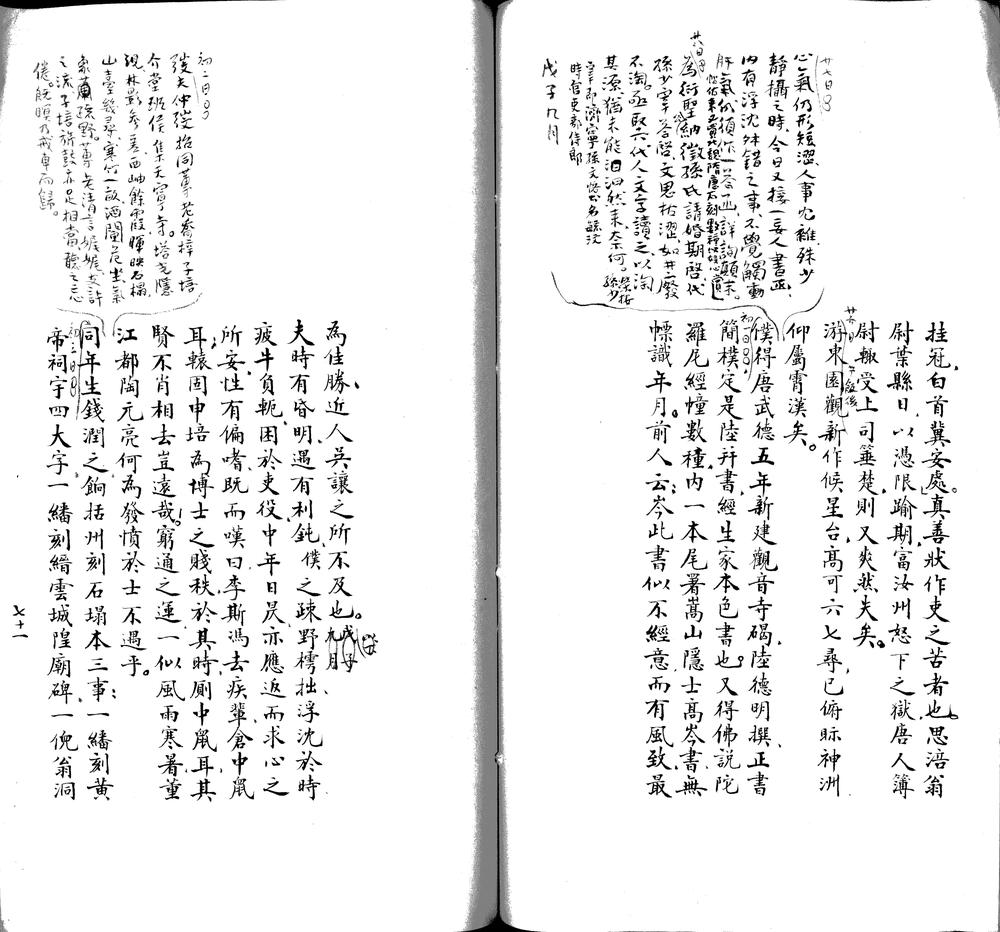 挂冠白首冀安處真善狀作吏之苦者也思浯翁
尉葉縣日以憑限踰期富汝州怒下之獄唐人簿
尉輒受上司箠楚則又爽然失矣
游東園觀新作候星台高可六七尋已俯眎神洲
仰屬霄漢矣
僕得唐武德五年新建觀音寺碣陸德明撰正書
簡樸定是陸幷書經生家本色書也又得佛說陀
羅尼經幢數種內一本尾署嵩山隱士高岑書無
慓識年月前人云岑此書似不經意而有風致最
廿七日
心气仍形短澀人事尤雜殊少
靜攝之時今日又接一妄人書函
內有浮沈舛錯之事不覺觸動
肝氣似須作一答函詳詢顛末
廿八日
為衍聖納徵孫氏請婚期啓代
孫少宰答啓文思枯澀如井廢
不淘亟取六代人文字讀之以淘
其源猶未能汩汩然來奈何
孫少
宰即濟寧孫文恪公名毓汶
時官吏部侍郎
戊子九月
為佳勝近人吳讓之所不及也
戊子
九月
夫時有昏明遇有利鈍僕之疎野樗拙浮沈於時
疲牛負軛困於吏役中年日昃亦應返而求心之
所安性有偏嗜既而嘆曰李斯馮去疾輩倉中鼠
耳轅固申培為博士之賤秩於其時廁中鼠耳其
賢不肖相去豈遠哉窮通之運一似風雨寒暑董
江都陶元亮何為發憤於士不遇乎
同年生錢潤之餉括州刻石塌本三事一繙刻黃
帝祠宇四大字一繙刻縉雲城隍廟碑一倪翁洞
初二日
弢夫仲弢招同
介堂班侯集天寧寺塔
視林影參差西岫餘霞暉映石榻
山臺幾尋寒竹一畝酒闌危坐氣
之流子培
倦
乃戒車而歸
七十一